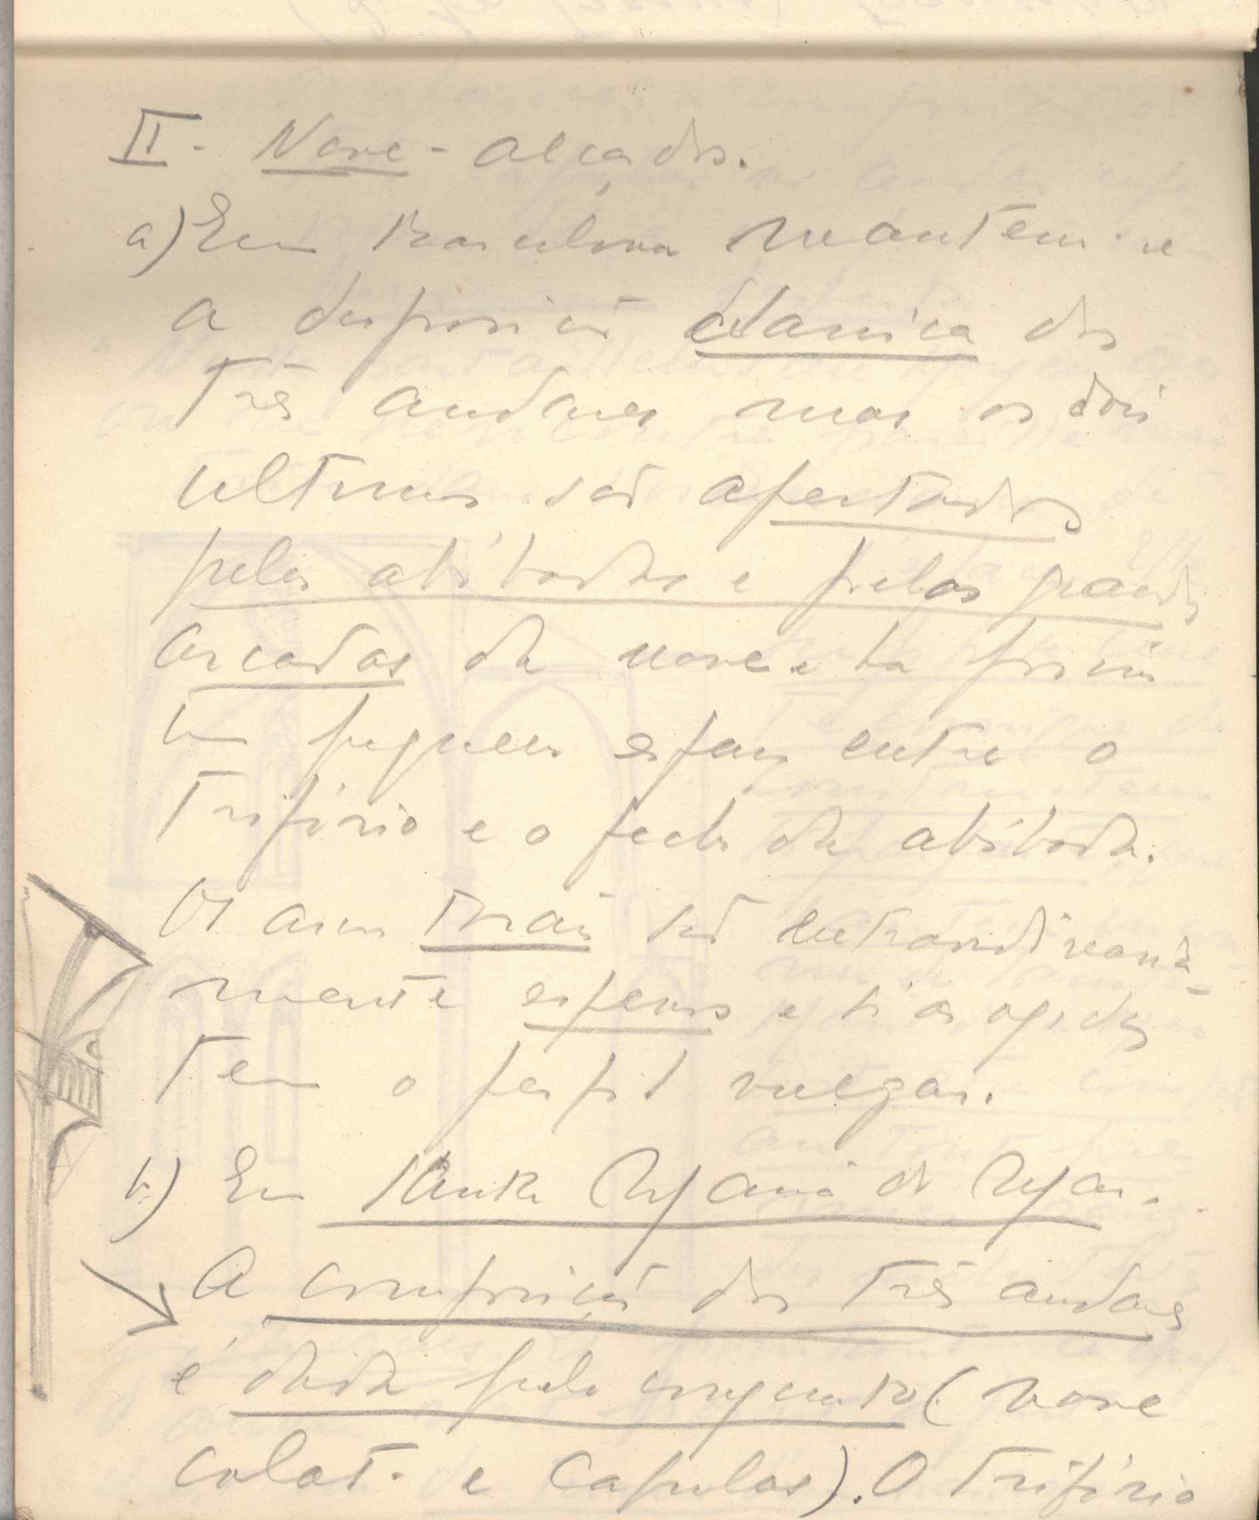 II - Nave - alçados.
a) Em Barcelona mantem-se
a disposição classica dos
três andares mas os dois
ultimos são apertados
pelas abóbadas e pelas grandes
arcadas da nave e ha por isso
um pequeno espaço entre o
trifório e o fecho da abóbada.
Os arcos torais são extraordinaria-
mente espessos e só as ogivas
tem o perfil vulgar.
b) Em Santa Maria do Mar.
A composição dos três andares
é dada pelo conjunto (nave
colat. e capelas). O trifório